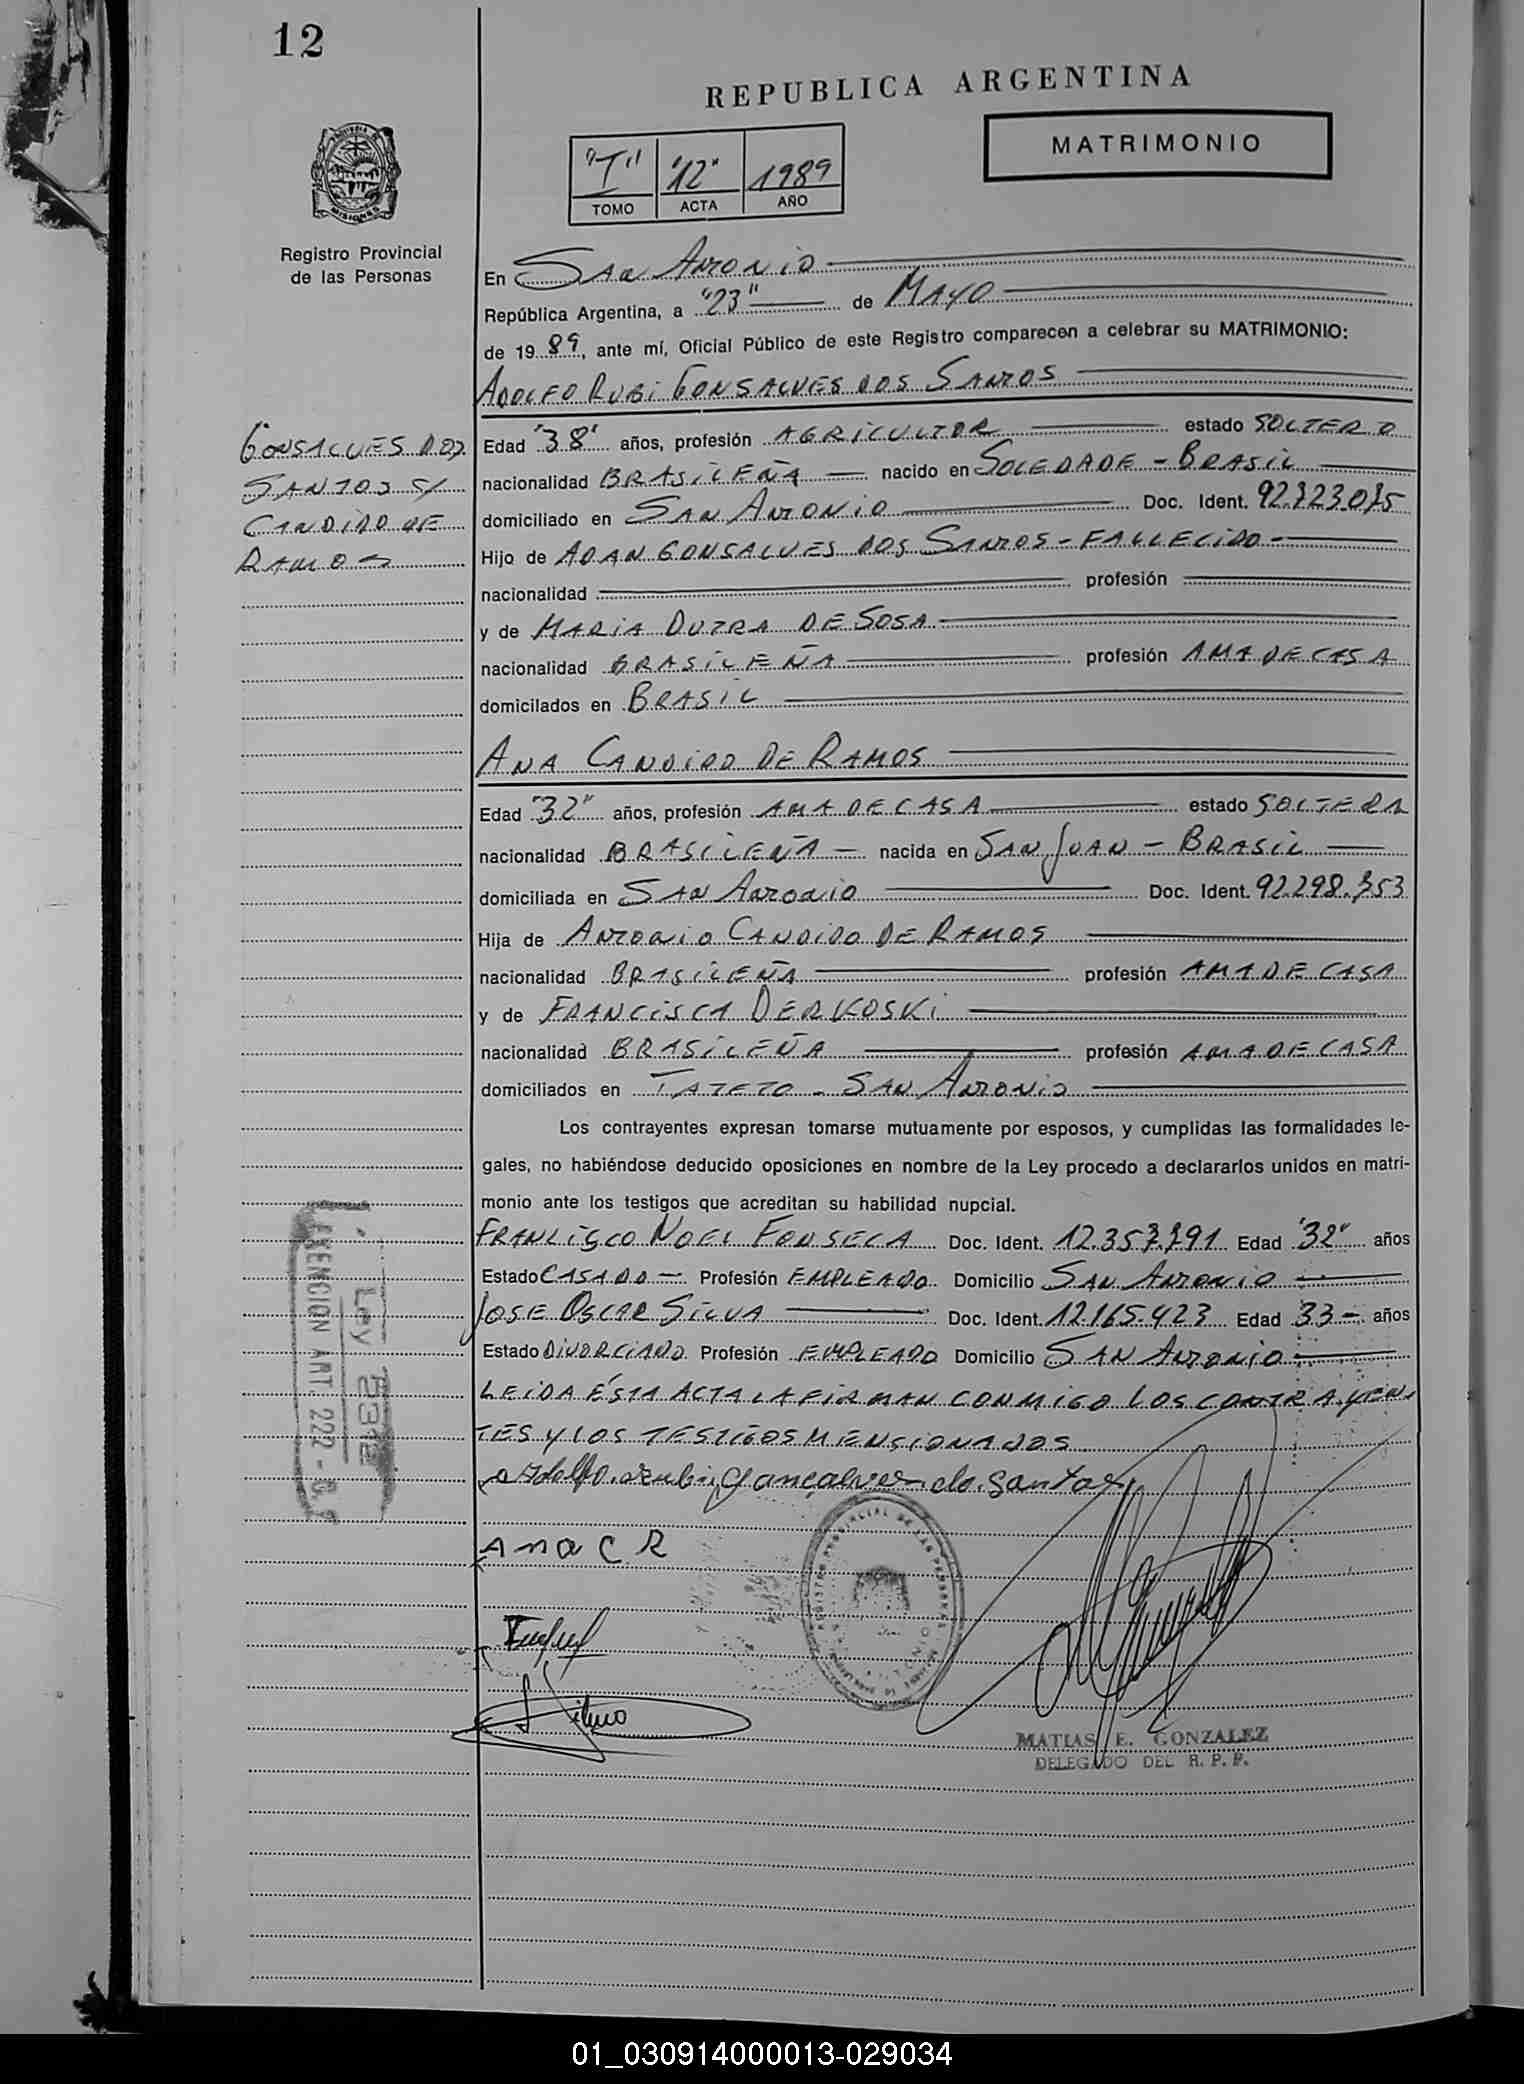 12
REPUBLICA ARGENTINA
MATRIMONIO
"I" "12" 1989
TOMO ACTA AÑO
MISIONES
Registro Provincial
de las Personas
En San Antonio
República Argentina, a "23" de MAYO
de 19 89, ante mí, Oficial Público de este Registro comparecen a celebrar su MATRIMONIO:
ADOLFO RUBI GONSALVES DOS SANTOS
GONSALVES DOS
SANTOS C/
CANDIDO DE
RAMOS
Edad "38" años, profesión AGRICULTOR estado SOLTERO
nacionalidad BRASILEÑA nacido en SOLEDADE - BRASIL
domiciliado en SAN ANTONIO Doc. Ident. 92.723.075
Hijo de ADAN GONSALVES DOS SANTOS - FALLECIDO -
nacionalidad profesión
y de MARIA DUTRA DE SOSA
nacionalidad BRASILEÑA profesión AMA DE CASA
domicilados en BRASIL
ANA CANDIDO DE RAMOS
Edad "32" años, profesión AMA DE CASA estado SOLTERA
nacionalidad BRASILEÑA nacida en SAN JUAN - BRASIL
domiciliada en SAN ANTONIO Doc. Ident. 92.298.753
Hija de ANTONIO CANDIDO DE RAMOS
nacionalidad BRASILEÑA profesión AMA DE CASA
y de FRANCISCA DERKOSKI
nacionalidad BRASILEÑA profesión AMA DE CASA
domiciliados en TATETO - SAN ANTONIO
Los contrayentes expresan tomarse mutuamente por esposos, y cumplidas las formalidades le-
gales, no habiéndose deducido oposiciones en nombre de la Ley procedo a declararlos unidos en matri-
monio ante los testigos que acreditan su habilidad nupcial.
FRANCISCO NOEL FONSECA Doc. Ident. 12.357.791 Edad "32" años
Estado CASADO - Profesión EMPLEADO Domicilio SAN ANTONIO
JOSE OSCAR SILVA Doc. Ident. 12.165.423 Edad 33 - años
Estado DIVORCIADO Profesión EMPLEADO Domicilio SAN ANTONIO
LEIDA ÉSTA ACTA LA FIRMAN CONMIGO LOS CONTRAYEN
TES Y LOS TESTIGOS MENSIONADOS
EXENCION ART. 222 - C. F
Ley 2312
Adolfo Rubi gonçalves do santos
Ana C R
MATIAS E. GONZALEZ
DELEGADO DEL R. P. P.
01_030914000013-029034